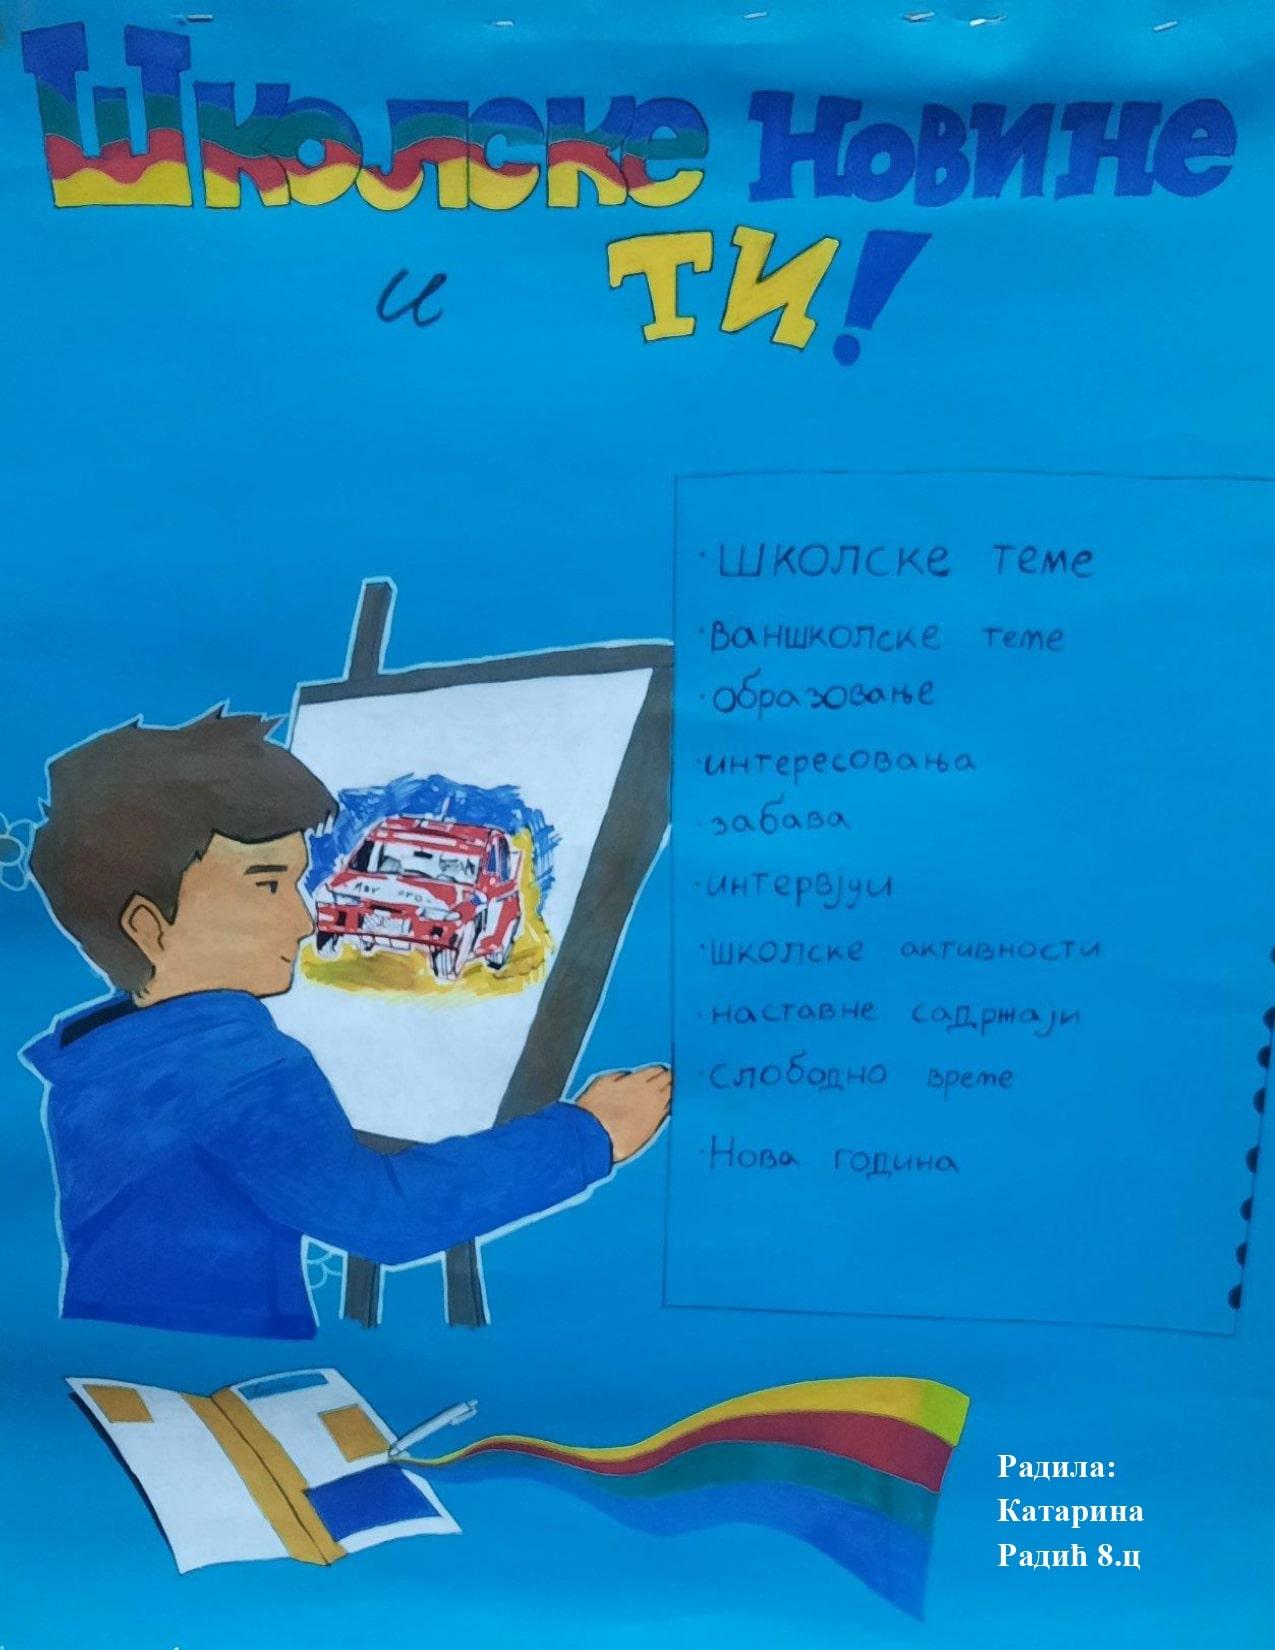 Школске новине
и ТИ!
·школске теме
·Ваншколске теме
·образовање
·интересовања
·забава
·интервјуи
·школске активности
·наставне садржаји
·Слободно време
·Нова година
Радила:
Катарина
Радић 8.ц